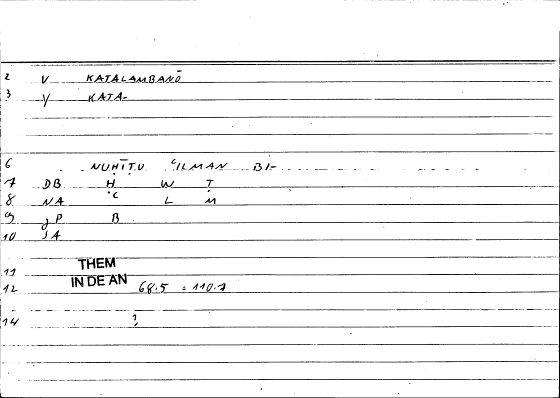 2 V KATALAMBANŌ
3 V KATA-
6 NUḤĪṬU ʿILMAN BI-
7 DB Ḥ W Ṭ
8 NA ʿC L M
9 P B
10 A
11 THEM
12 IN DE AN 68.5 = 110.7
14 ?